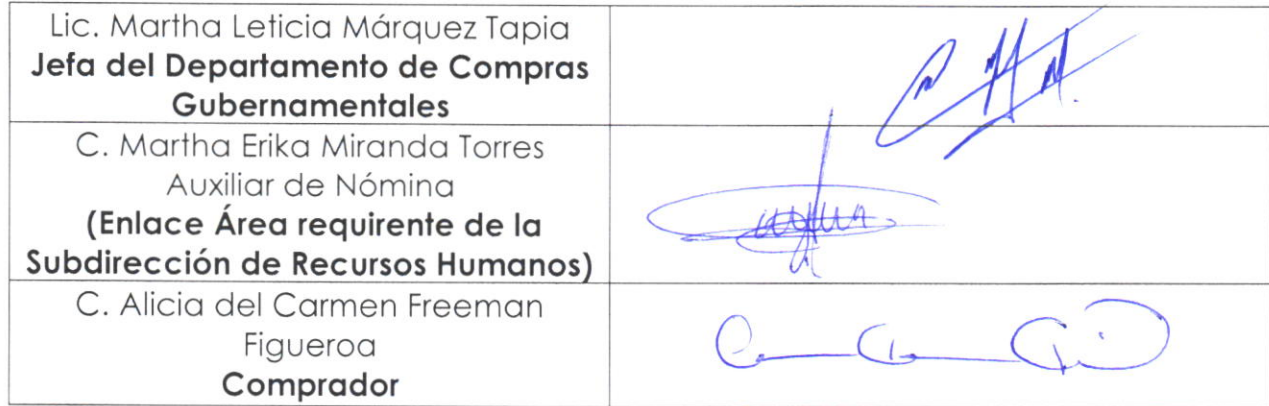 Lic. Martha Leticia Márquez Tapia
Jefa del Departamento de Compras
Gubernamentales
C. Martha Erika Miranda Torres
Auxiliar de Nómina
(Enlace Área requirente de la
Subdirección de Recursos Humanos)
C. Alicia del Carmen Freeman
Figueroa
Comprador